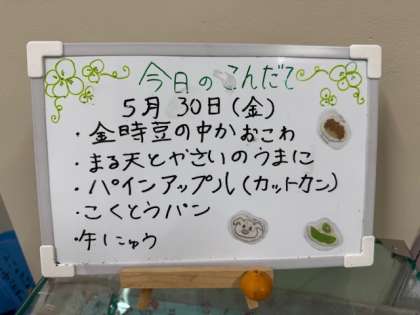 今日のこんだて
5月 30日(金)
・金時豆の中かおこわ
・まる天とやさいのうまに
・パインアップル(カットカン)
・こくとうパン
・牛にゅう